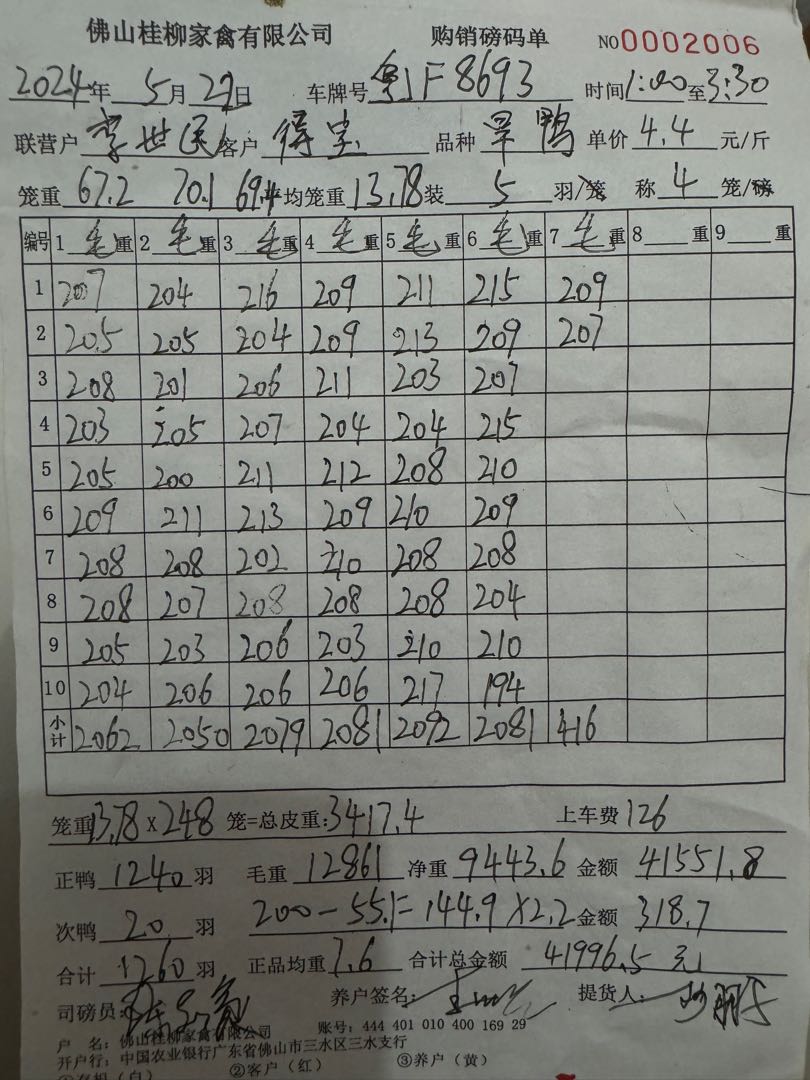 佛山桂柳家禽有限公司 购销磅码单 NO0002006
2024年 5月29日 车牌号 粤JF8693 时间1:00至3:30
联营户 李世民 客户 得宝 品种 旱鸭 单价 4.4 元/斤
笼重 67.2 70.1 69.4 平均笼重 13.78 装 5 羽/笼 称 4 笼/磅
编号 1 毛重 2 毛重 3 毛重 4 毛重 5 毛重 6 毛重 7 毛重 8 重 9 重
1 207 204 216 209 211 215 209
2 205 205 204 209 213 209 207
3 208 201 206 211 203 207
4 203 205 207 204 204 215
5 205 200 211 212 208 210
6 209 211 213 209 210 209
7 208 208 202 210 208 208
8 208 207 208 208 208 204
9 205 203 206 203 210 210
10 204 206 206 206 217 194
小计 2062 2050 2079 2081 2092 2081 416
笼重13.78×248 笼=总皮重:3417.4 上车费126
正鸭 1240 羽 毛重 12861 净重 9443.6 金额 41551.8
次鸭 20 羽 200-55.1=144.9×2.2 金额 318.7
合计 1260 羽 正品均重 7.6 合计总金额 41996.5元
司磅员: 养户签名: 提货人:
户 名: 佛山桂柳家禽有限公司 账号: 444 401 010 400 169 29
开户行: 中国农业银行广东省佛山市三水区三水支行
①存根(白) ②客户(红) ③养户(黄)